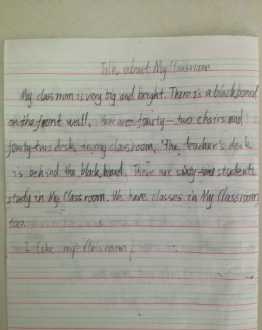 Talk about My Classroom
My classroom is very big and bright. There is a blackboard
on the front wall. There are fourty-two chairs and
fourty-two desk in my classroom. The teacher's desk
is behind the blackboard. There are sixty-one students
study in My Classroom. We have classes in My Classroom
too.
I like my classroom!